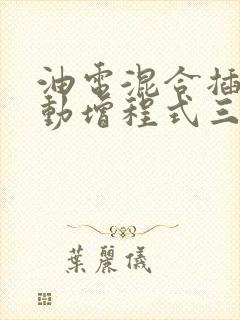 油电混合插
動增程式三
葉麗儀